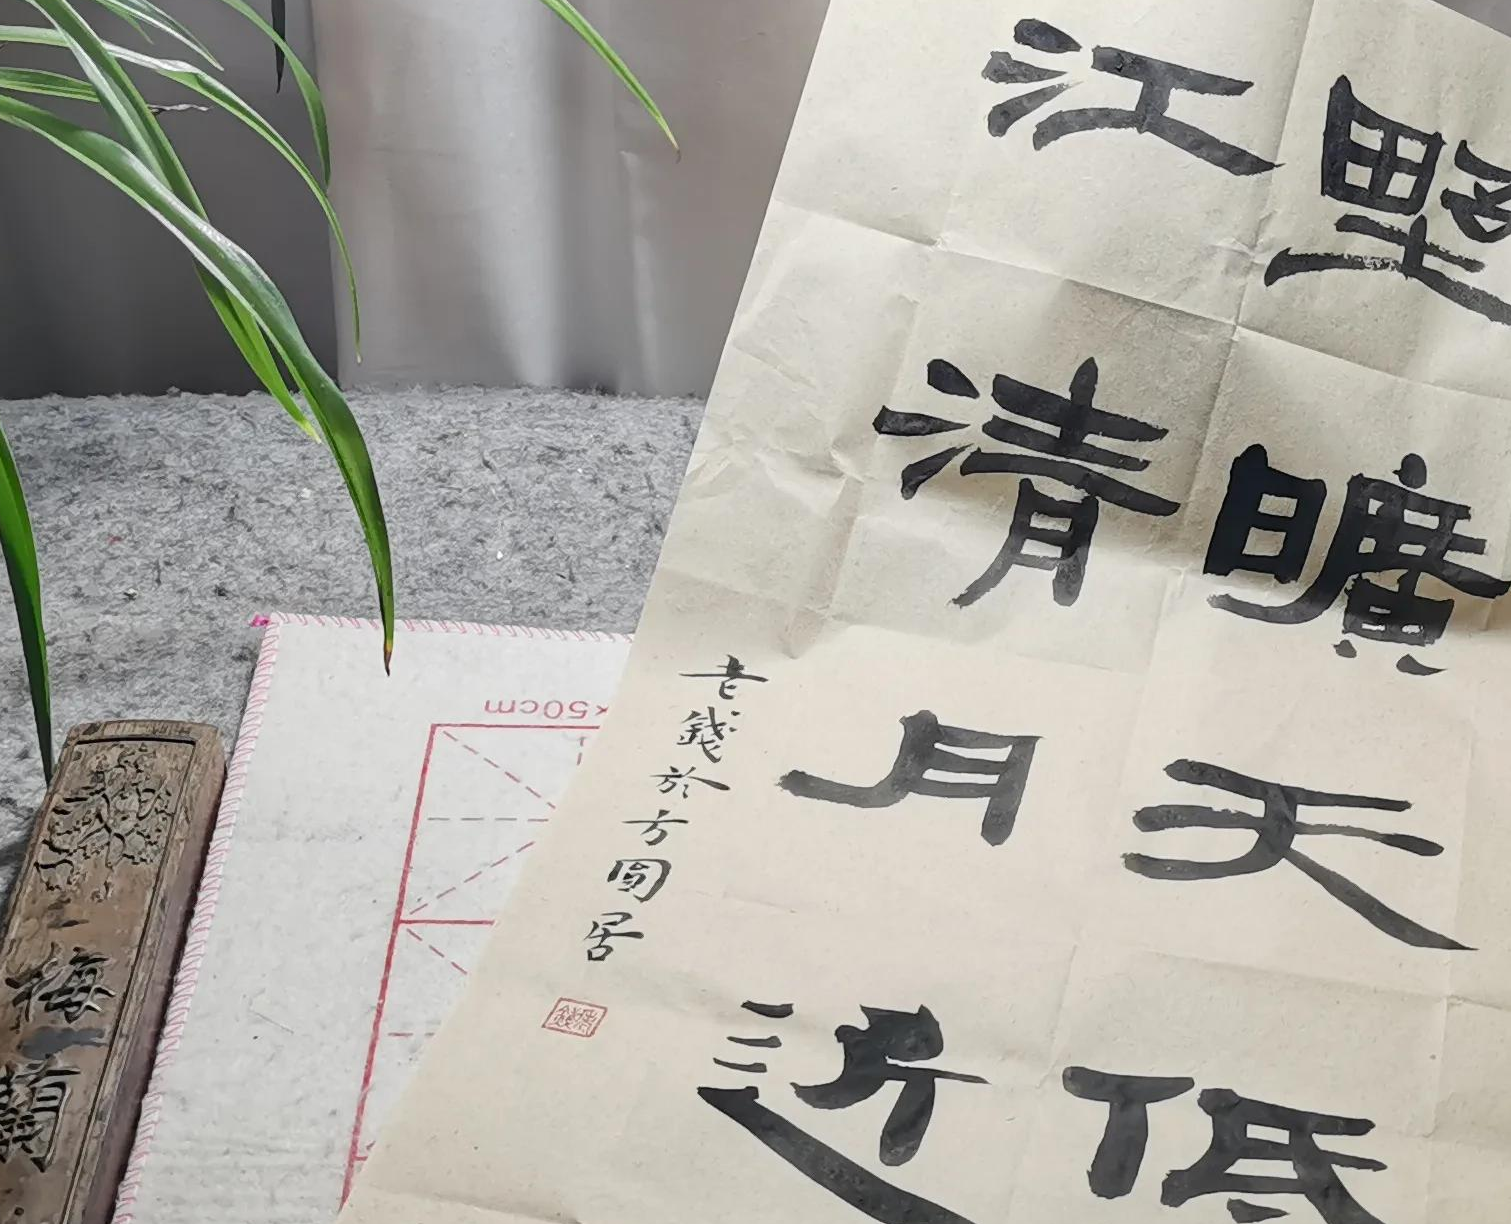 野曠天低
江清月近
老錢於方圓居
梅蘭
×50cm